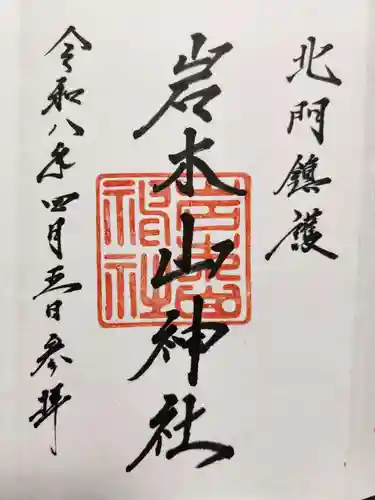 北門鎮護
岩木山神社
令和八年四月五日参拝